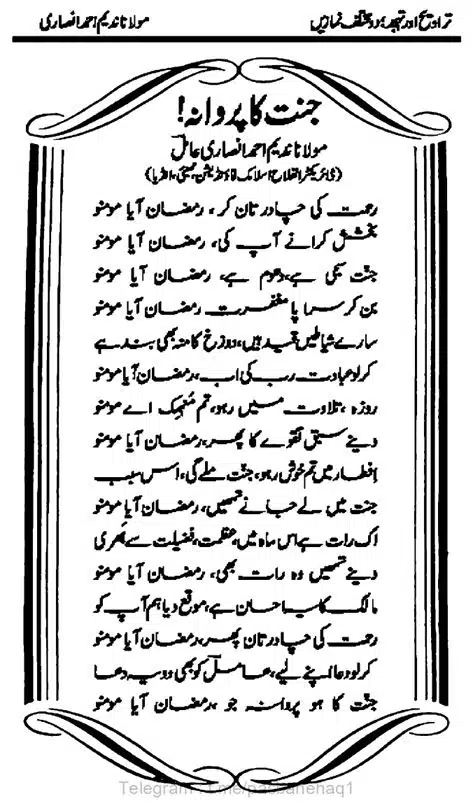 تراویح اور تہجد؛ دو مختلف نمازیں
مولانا ندیم احمد انصاری
جنت کا پروانہ!
مولانا ندیم احمد انصاری عاملؔ
(ڈائریکٹر الفلاح اسلامک فاؤنڈیشن، ممبئی، انڈیا)
رحمت کی چادر تان کر، رمضان آیا مومنو
بخشش کرانے آپ کی، رمضان آیا مومنو
جنت سجی ہے، دھوم ہے، رمضان آیا مومنو
بن کر سراپا مغفرت رمضان آیا مومنو
سارے شیاطیں قید ہیں، دوزخ کا منہ بھی بند ہے
کرلو عبادت رب کی اب، رمضان آیا مومنو
روزہ، تلاوت میں رہو، تم منہمک اے مومنو
دینے سبق تقوے کا پھر، رمضان آیا مومنو
افطار میں تم خوش رہو، جنت ملے گی، اس سبب
جنت میں لے جانے تمھیں، رمضان آیا مومنو
اک رات ہے اس ماہ میں، عظمت، فضیلت سے بھری
دینے تمھیں وہ رات بھی، رمضان آیا مومنو
مالک کا یہ احسان ہے، موقع دیا ہم آپ کو
رحمت کی چادر تان پھر، رمضان آیا مومنو
کرلو دعا اپنے لیے، عاملؔ کو بھی دو یہ دعا
جنت کا ہو پروانہ جو، رمضان آیا مومنو
Telegram : t.me/pasbanehaq1